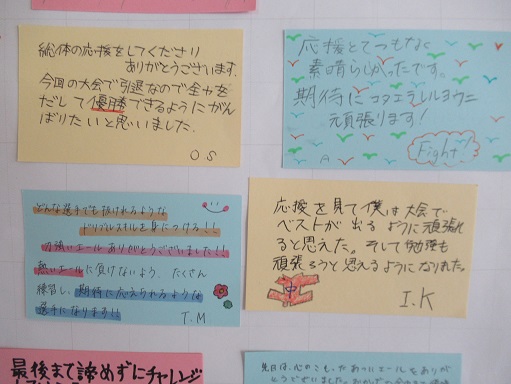 総体の応援をしてくださり
ありがとうございます.
今回の大会で引退なので全力を
だして優勝できるようにがん
ばりたいと思いました.
O S
応援とてつもなく
素晴らしかったです。
期待にコタエラレルヨウニ
頑張ります!
A
Fight!
どんな選手でも抜けれるような
ドリブルスキルを身につける!!
力強いエールありがとうございました!!
熱いエールに負けないよう、たくさん
練習し、期待に応えられるような
選手になります!!
T.M
応援を見て僕は大会で
ベストが出るように頑張れ
ると思えた。そして勉強も
頑張ろうと思えるようになれた。
中
I.K
最後まで諦めずにチャレンジ
先日は、心のこもったあついエールをありが
とうございました。